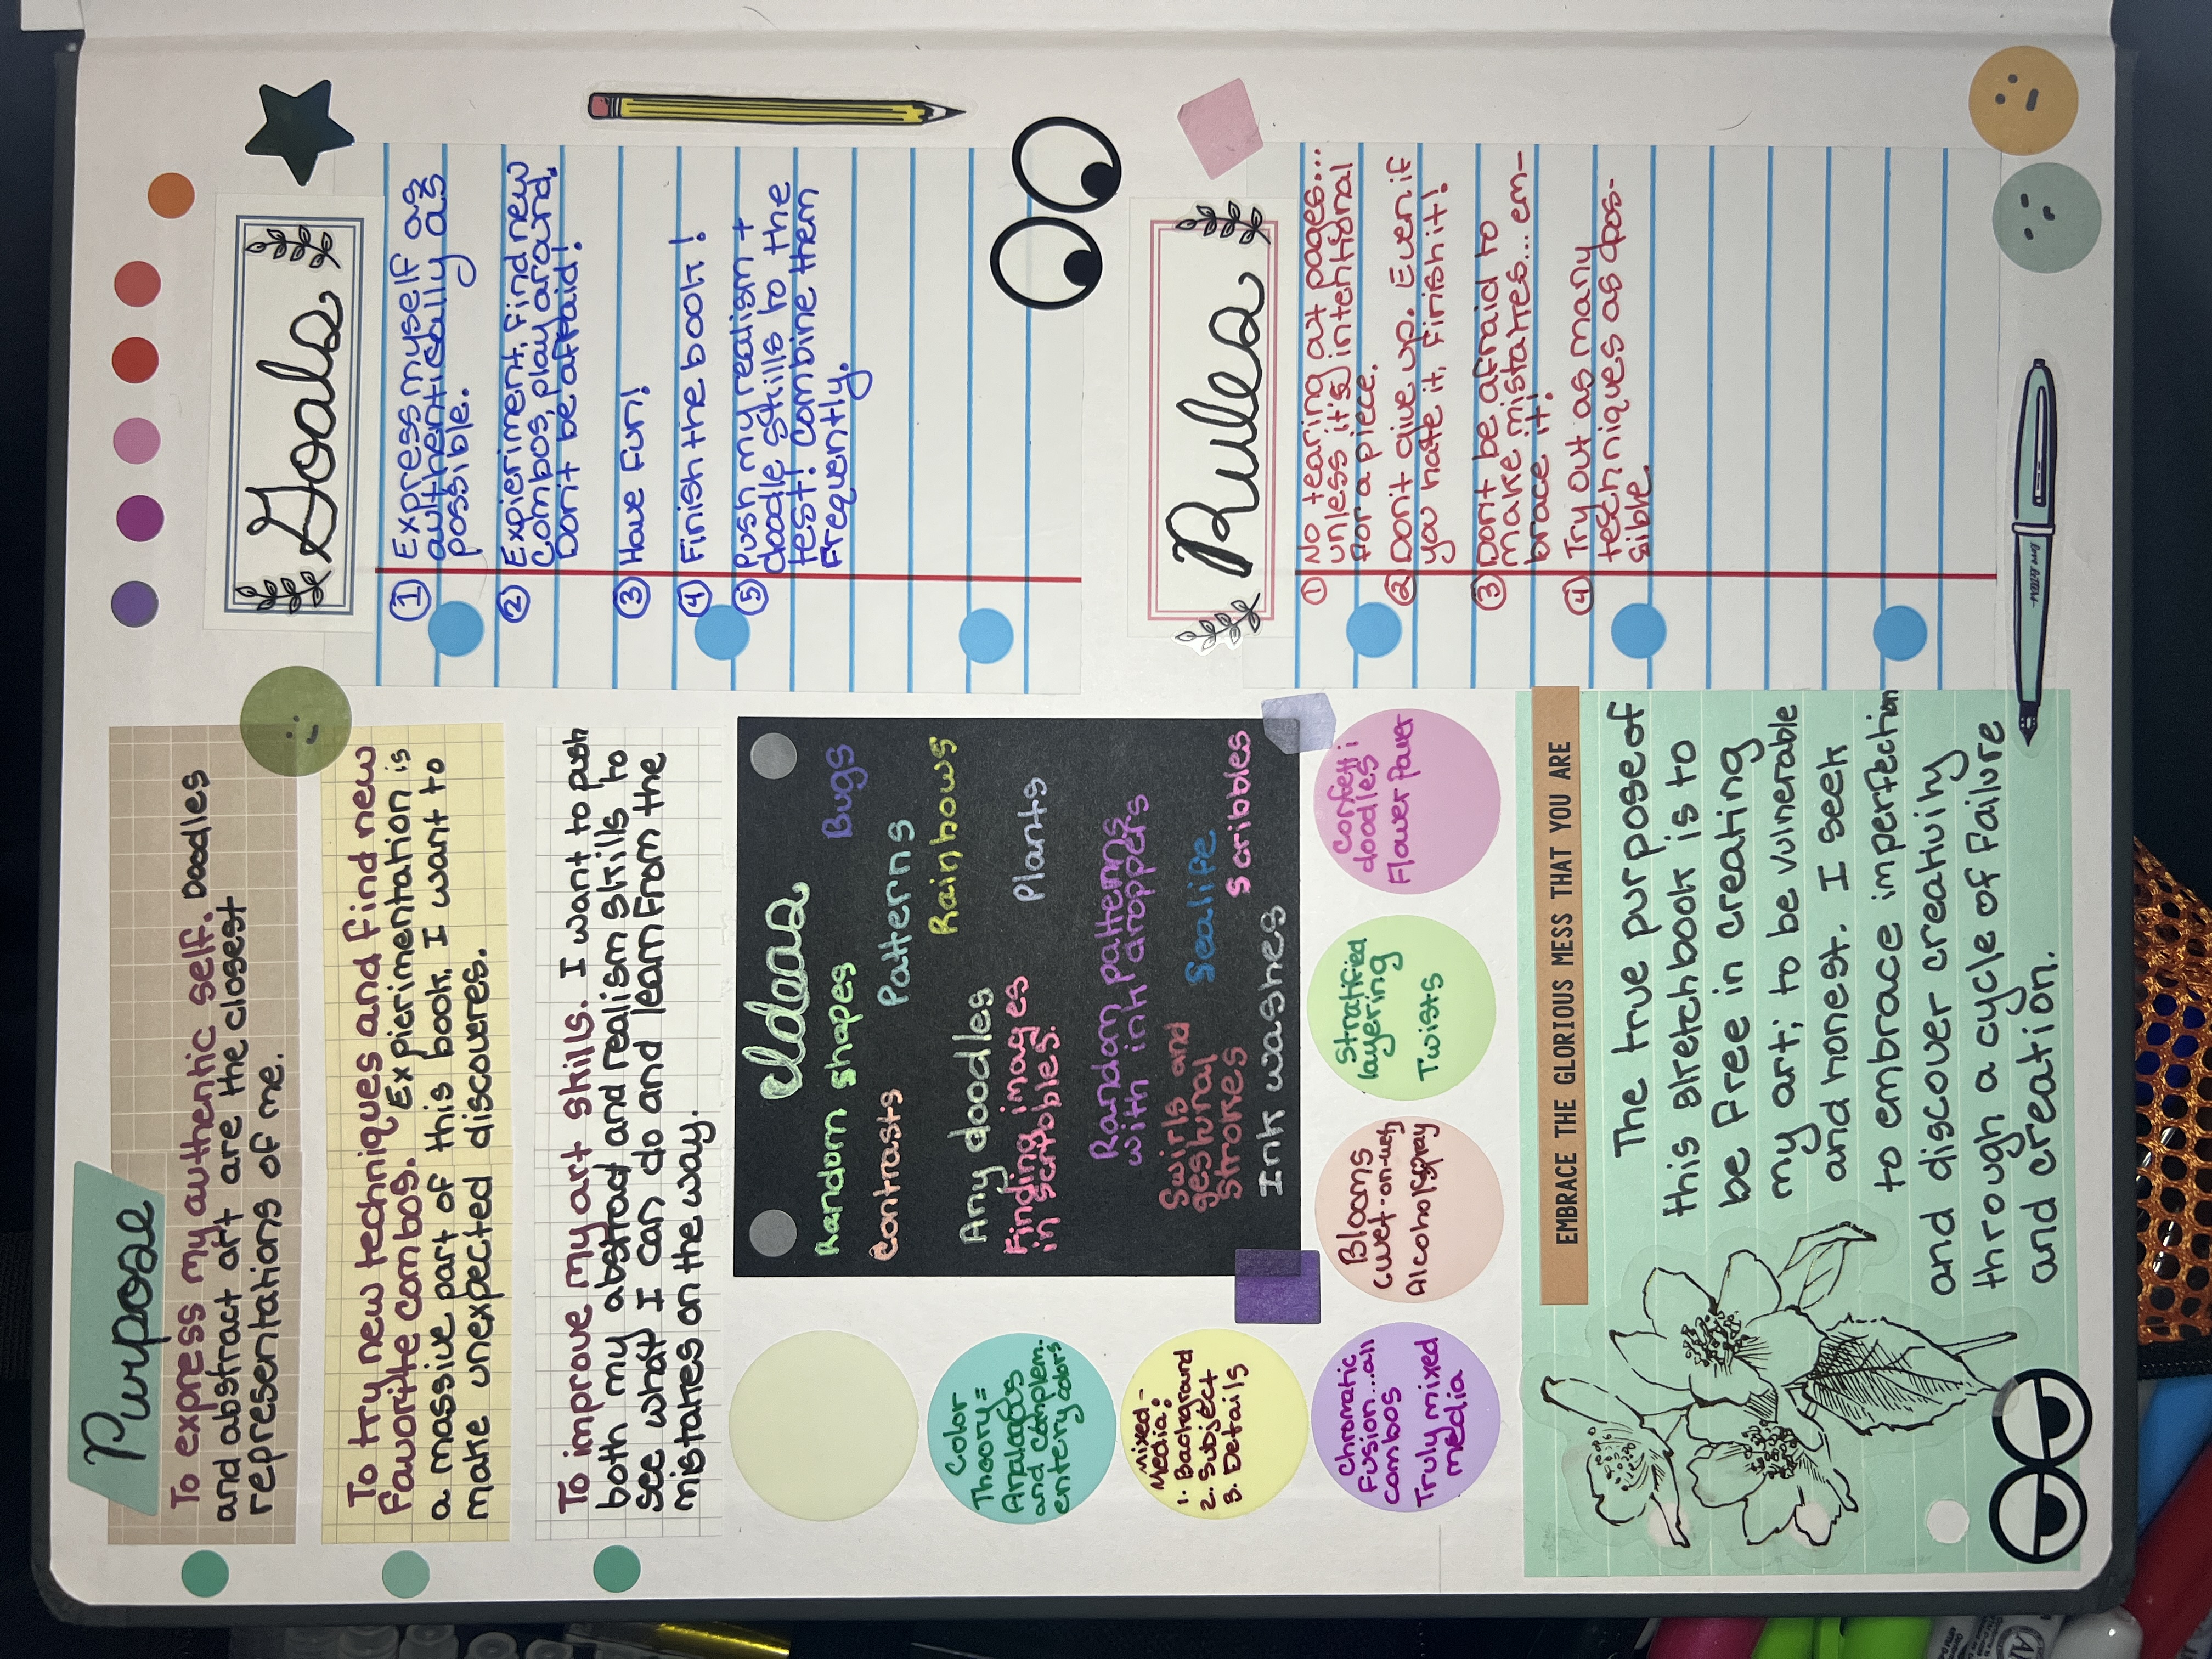 Purpose
To express my authentic self. Doodles
and abstract art are the closest
representations of me.
To try new techniques and find new
favorite combos. Expierimentation is
a massive part of this book. I want to
make unexpected discoveres.
To improve my art skills. I want to push
both my abstract and realism skills to
see what I can do and learn from the
mistakes on the way.
Ideas
Random shapes
Bugs
Contrasts
Patterns
Any doodles
Rainbows
Finding images
in scribbles.
Plants
Random patterns
with ink droppers
Swirls and
gestural
strokes
Sealife
Scribbles
Ink washes
Color
Theory=
Analagus
and complem-
entery colors
Mixed-
Media:
1. Background
2. Subject
3. Details
Chromatic
Fusion...all
combos
Truly mixed
media
Blooms
(wet-on-wet)
Alcohol spray
Stratified
layering
Twists
Confetti
doodles
Flower Power
EMBRACE THE GLORIOUS MESS THAT YOU ARE
The true purpose of
this sketchbook is to
be free in creating
my art; to be vulnerable
and honest. I seek
to embrace imperfection
and discover creativity
through a cycle of failure
and creation.
Goals
① Express myself as
authentically as
possible.
② Expieriment, find new
combos, play around.
Don't be afraid!
③ Have Fun!
④ Finish the book!
⑤ Push my realism +
doodle skills to the
test! Combine them
frequently.
Rules
① No tearing out pages...
unless it's intentional
for a piece.
② Don't give up. Even if
you hate it, finish it!
③ Don't be afraid to
make mistakes... em-
brace it!
④ Try out as many
techniques as pos-
sible